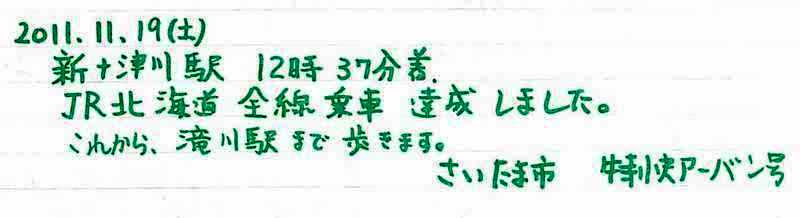 2011.11.19(土)
新十津川駅 12時37分着.
JR北海道 全線 乗車 達成 しました。
これから、滝川駅まで歩きます。
さいたま市 特別快アーバン号